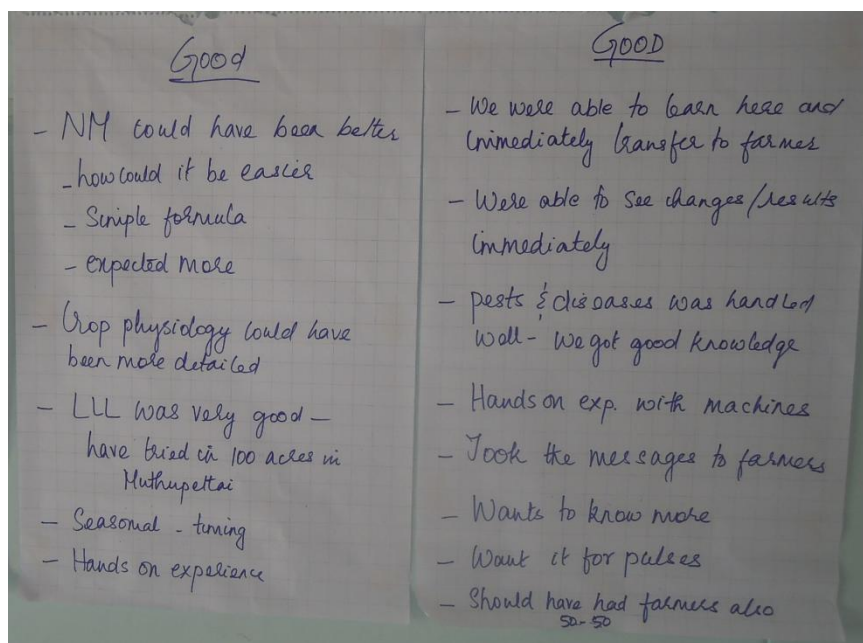 Good
- NM could have been better
- how could it be easier
- Simple formula
- expected more
- Crop physiology could have
been more detailed
- LLL was very good -
have tried in 100 acres in
Muthupettai
- Seasonal - timing
- Hands on experience
GOOD
- We were able to learn here and
immediately transfer to farmer
- Were able to see changes/results
immediately
- pests & diseases was handled
well - we got good knowledge
- Hands on exp. with machines
- Took the messages to farmers
- Wants to know more
- Want it for pulses
- Should have had farmers also
50-50